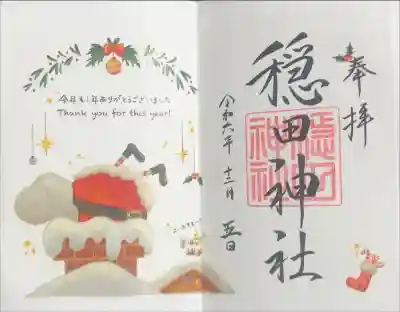 今年も1年ありがとうございました
Thank you for this year!
奉拝
穏田神社
令和六年 十二月 五日